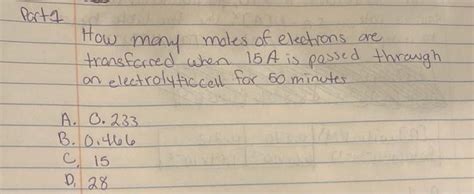 Part 1
How many moles of electrons are
transferred when 15A is passed through
an electrolytic cell for 50 minutes
A. 0.233
B. 0.466
C. 15
D. 28